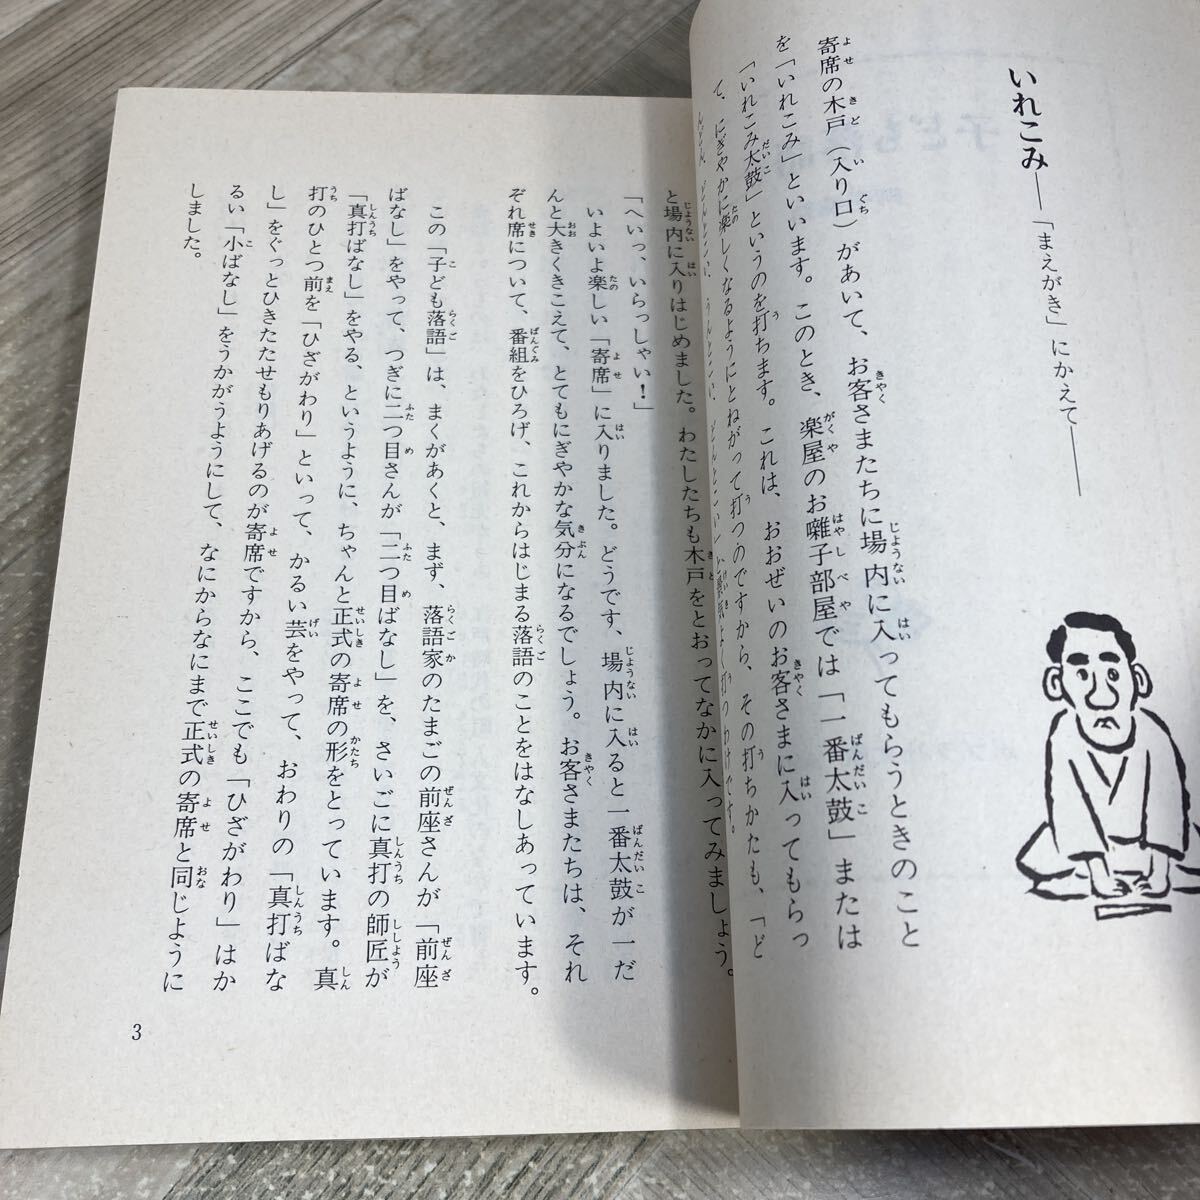 いれこみ――「まえがき」にかえて――
寄席の木戸（入り口）があいて、お客さまたちに場内に入ってもらうときのこと
を「いれこみ」といいます。このとき、楽屋のお囃子部屋では「一番太鼓」または
「いれこみ太鼓」というのを打ちます。これは、おおぜいのお客さまに入ってもらっ
て、にぎやかに楽しくなるようにとねがって打つのですから、その打ちかたも、「ど
んどん、どんとこい、うんとこい、どんとこい」と景気よく打つわけです。
と場内に入りはじめました。わたしたちも木戸をとおってなかに入ってみましょう。
「へいっ、いらっしゃい！」
いよいよ楽しい「寄席」に入りました。どうです、場内に入ると一番太鼓が一だ
んと大きくきこえて、とてもにぎやかな気分になるでしょう。お客さまたちは、それ
ぞれ席について、番組をひろげ、これからはじまる落語のことをはなしあっています。
この「子ども落語」は、まくがあくと、まず、落語家のたまごの前座さんが「前座
ばなし」をやって、つぎに二つ目さんが「二つ目ばなし」を、さいごに真打の師匠が
「真打ばなし」をやる、というように、ちゃんと正式の寄席の形をとっています。真
打のひとつ前を「ひざがわり」といって、かるい芸をやって、おわりの「真打ばな
し」をぐっとひきたたせもりあげるのが寄席ですから、ここでも「ひざがわり」はか
るい「小ばなし」をうかがうようにして、なにからなにまで正式の寄席と同じように
しました。
3